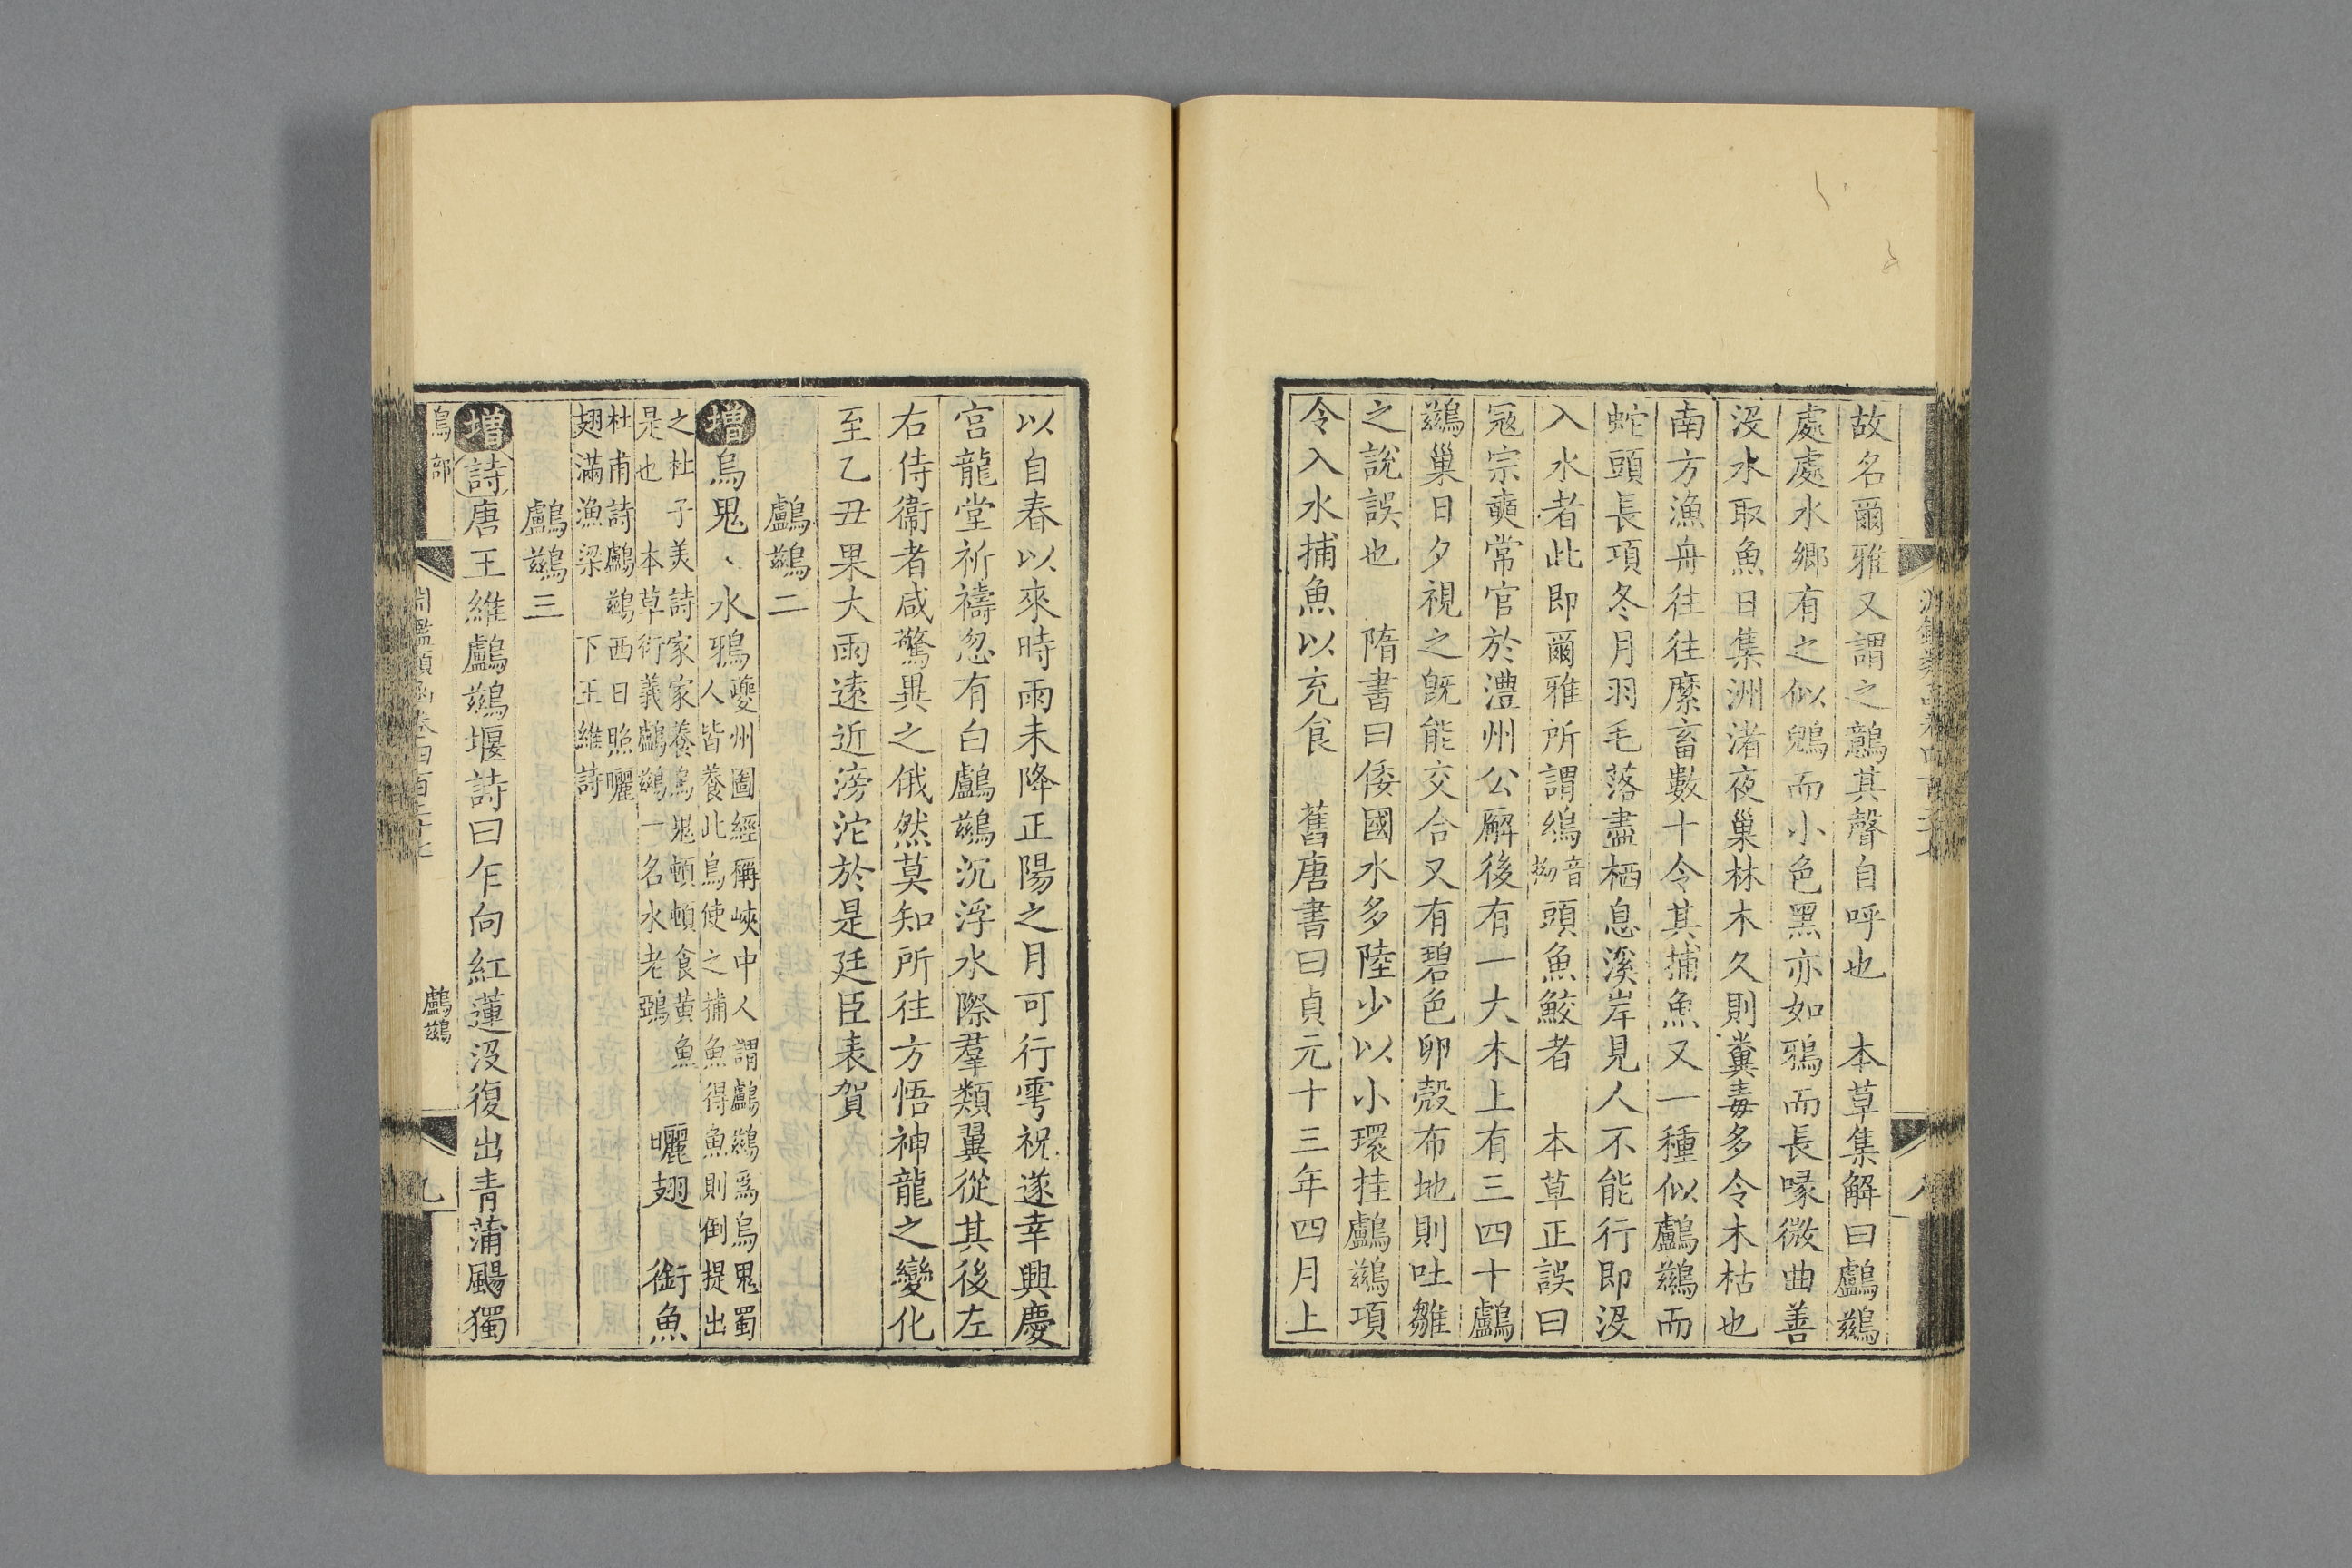 故名爾雅又謂之鷧其聲自呼也　本草集解曰鸕鷀
處處水鄉有之似鶂而小色黑亦如鴉而長喙微曲善
没水取魚日集洲渚夜巢林木久則糞毒多令木枯也
南方漁舟往往縻畜數十令其捕魚又一種似鸕鷀而
蛇頭長項冬月羽毛落盡栖息溪岸見人不能行即没
入水者此即爾雅所謂鴢音拗頭魚鮫者　本草正誤曰
冦宗奭常官於澧州公廨後有一大木上有三四十鸕
鷀巢日夕視之旣能交合又有碧色卵殼布地則吐雛
之說誤也　隋書曰倭國水多陸少以小環挂鸕鷀項
令入水捕魚以充食　舊唐書曰貞元十三年四月上
以自春以來時雨未降正陽之月可行雩祝遂幸興慶
宮龍堂祈禱忽有白鸕鷀沉浮水際羣類翼從其後左
右侍衞者咸驚異之俄然莫知所往方悟神龍之變化
至乙丑果大雨遠近滂沱於是廷臣表賀
鸕鷀二
增烏鬼、水鴉夔州圖經稱峽中人謂鸕鷀爲烏鬼蜀人皆養此烏使之捕魚得魚則倒提出
之杜子美詩家家養烏鬼頓頓食黃魚是也　本草衍義鸕鷀一名水老鵶　曬翅　銜魚
杜甫詩鸕鷀西日照曬翅滿漁梁　下王維詩
鸕鷀三
增詩唐王維鸕鷀堰詩曰乍向紅蓮没復出青蒲颺獨
鳥部
淵鑑類函卷四百二十七
鸕鷀
九